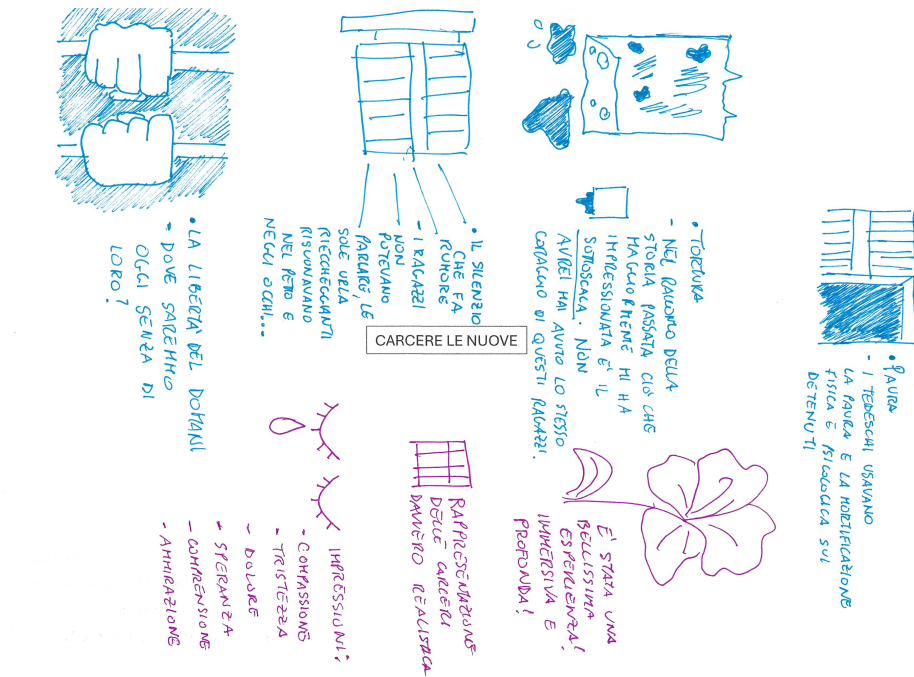 • PAURA
- I TEDESCHI USAVANO
LA PAURA E LA MORTIFICAZIONE
FISICA E PSICOLOGICA SUI
DETENUTI
• TORTURA
- NEL RACCONTO DELLA
STORIA PASSATA CIÒ CHE
MAGGIORMENTE MI HA
IMPRESSIONATA E' IL
SOTTOSCALA. NON
AVREI MAI AVUTO LO STESSO
CORAGGIO DI QUESTI RAGAZZI.
• IL SILENZIO
CHE FA
RUMORE
- I RAGAZZI
NON
POTEVANO
PARLARE, LE
SOLE URLA
RIECHEGGIANTI
RISUONAVANO
NEL PETTO E
NEGLI OCCHI...
• LA LIBERTÀ DEL DOMANI
- DOVE SAREMMO
OGGI SENZA DI
LORO?
CARCERE LE NUOVE
E' STATA UNA
BELLISSIMA
ESPERIENZA!
IMMERSIVA E
PROFONDA!
RAPPRESENTAZIONE
DELLE CARCERI
DAVVERO REALISTICA
IMPRESSIONI:
- COMPASSIONE
- TRISTEZZA
- DOLORE
- SPERANZA
- COMPRENSIONE
- AMMIRAZIONE